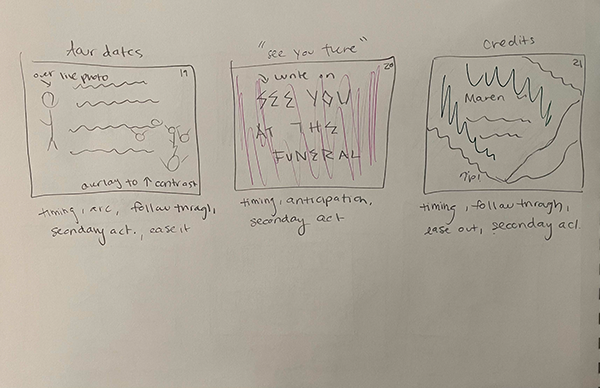 tour dates
over live photo
19
overlay to ↑ contrast
timing, arc, follow through,
secondary act., ease it
"see you there"
20
↓ write on
SEE YOU
AT THE
FUNERAL
timing, anticipation,
seconday act
credits
21
Maren
timing, follow through,
ease out, seconday act.